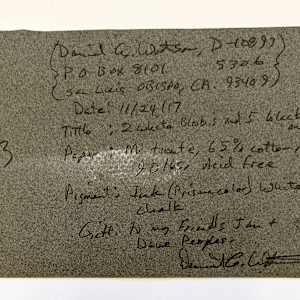 (Daniel G. Watson, D-10897)
(P.O. Box 8101, 5326
(San Luis OBISPO, CA. 93409)
Date: 11/29/17
Title: 2 white Globs and 5 black
Paper: Mi-tientes, 65% cotton,
98 lbs, Acid free
Pigment: Ink (Prismacolor) White
chalk
Gift: To my friends Jan &
Dave
Daniel G. Watson